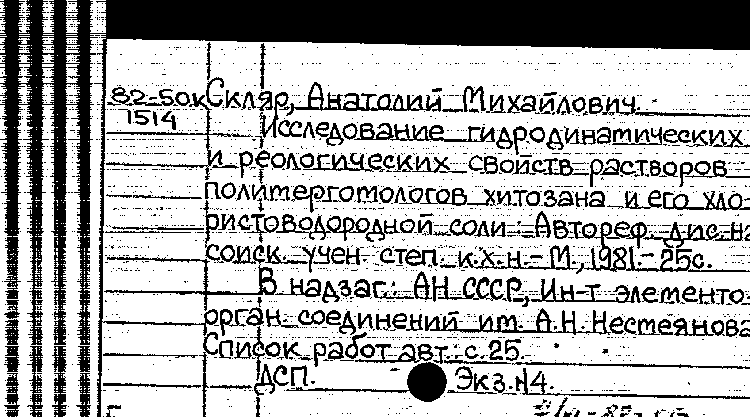 82-50к Скляр, Анатолий Михайлович.
1514
Исследование гидродинамических
и реологических свойств растворов
политерготологов хитозана и его хло-
ристоводородной соли: Автореф. дис. на
соиск. учен. степ. к.х.н. - М., 1981. - 25с.
В надзаг.: АН СССР, Ин-т элементо-
орган. соединений им. А.Н. Несмеянова
Список работ авт.: с.25.
ДСП. Экз. №4.